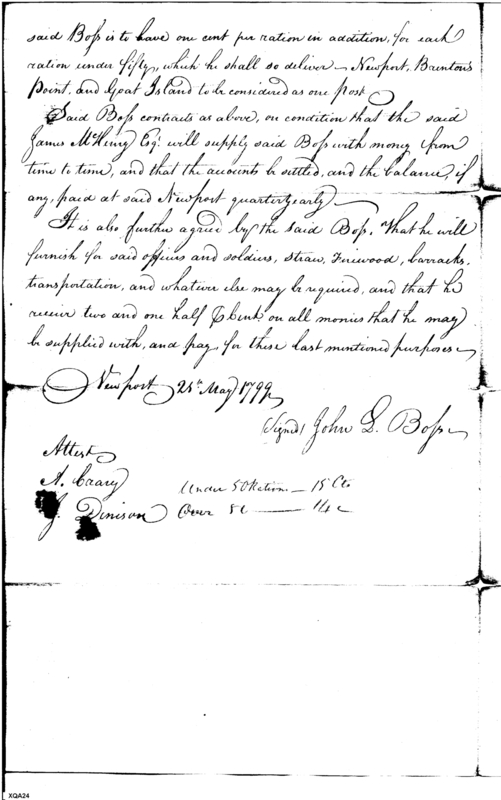 said Boss is to have one cent per ration in addition, for each
ration under fifty, which he shall so deliver — Newport, Brenton's
Point, and Goat Island to be considered as one post
Said Boss contracts as above, on condition that the said
James McHenry Esqr. will supply said Boss with money from
time to time, and that the accounts be settled, and the balance, if
any, paid at said Newport quarter yearly —
It is also further agreed by the said Boss, That he will
furnish for said officers and soldiers, straw, Firewood, barracks,
transportation, and whatever else may be required, and that he
receive two and one half P Cent on all monies that he may
be supplied with, and pay for these last mentioned purposes
Newport 25th May 1799
(Signed) John L. Boss
Attest
A. Crary
J. Dinison
Under 50 Rations — 15 Cts
Over 50 — 14 c
XQA24